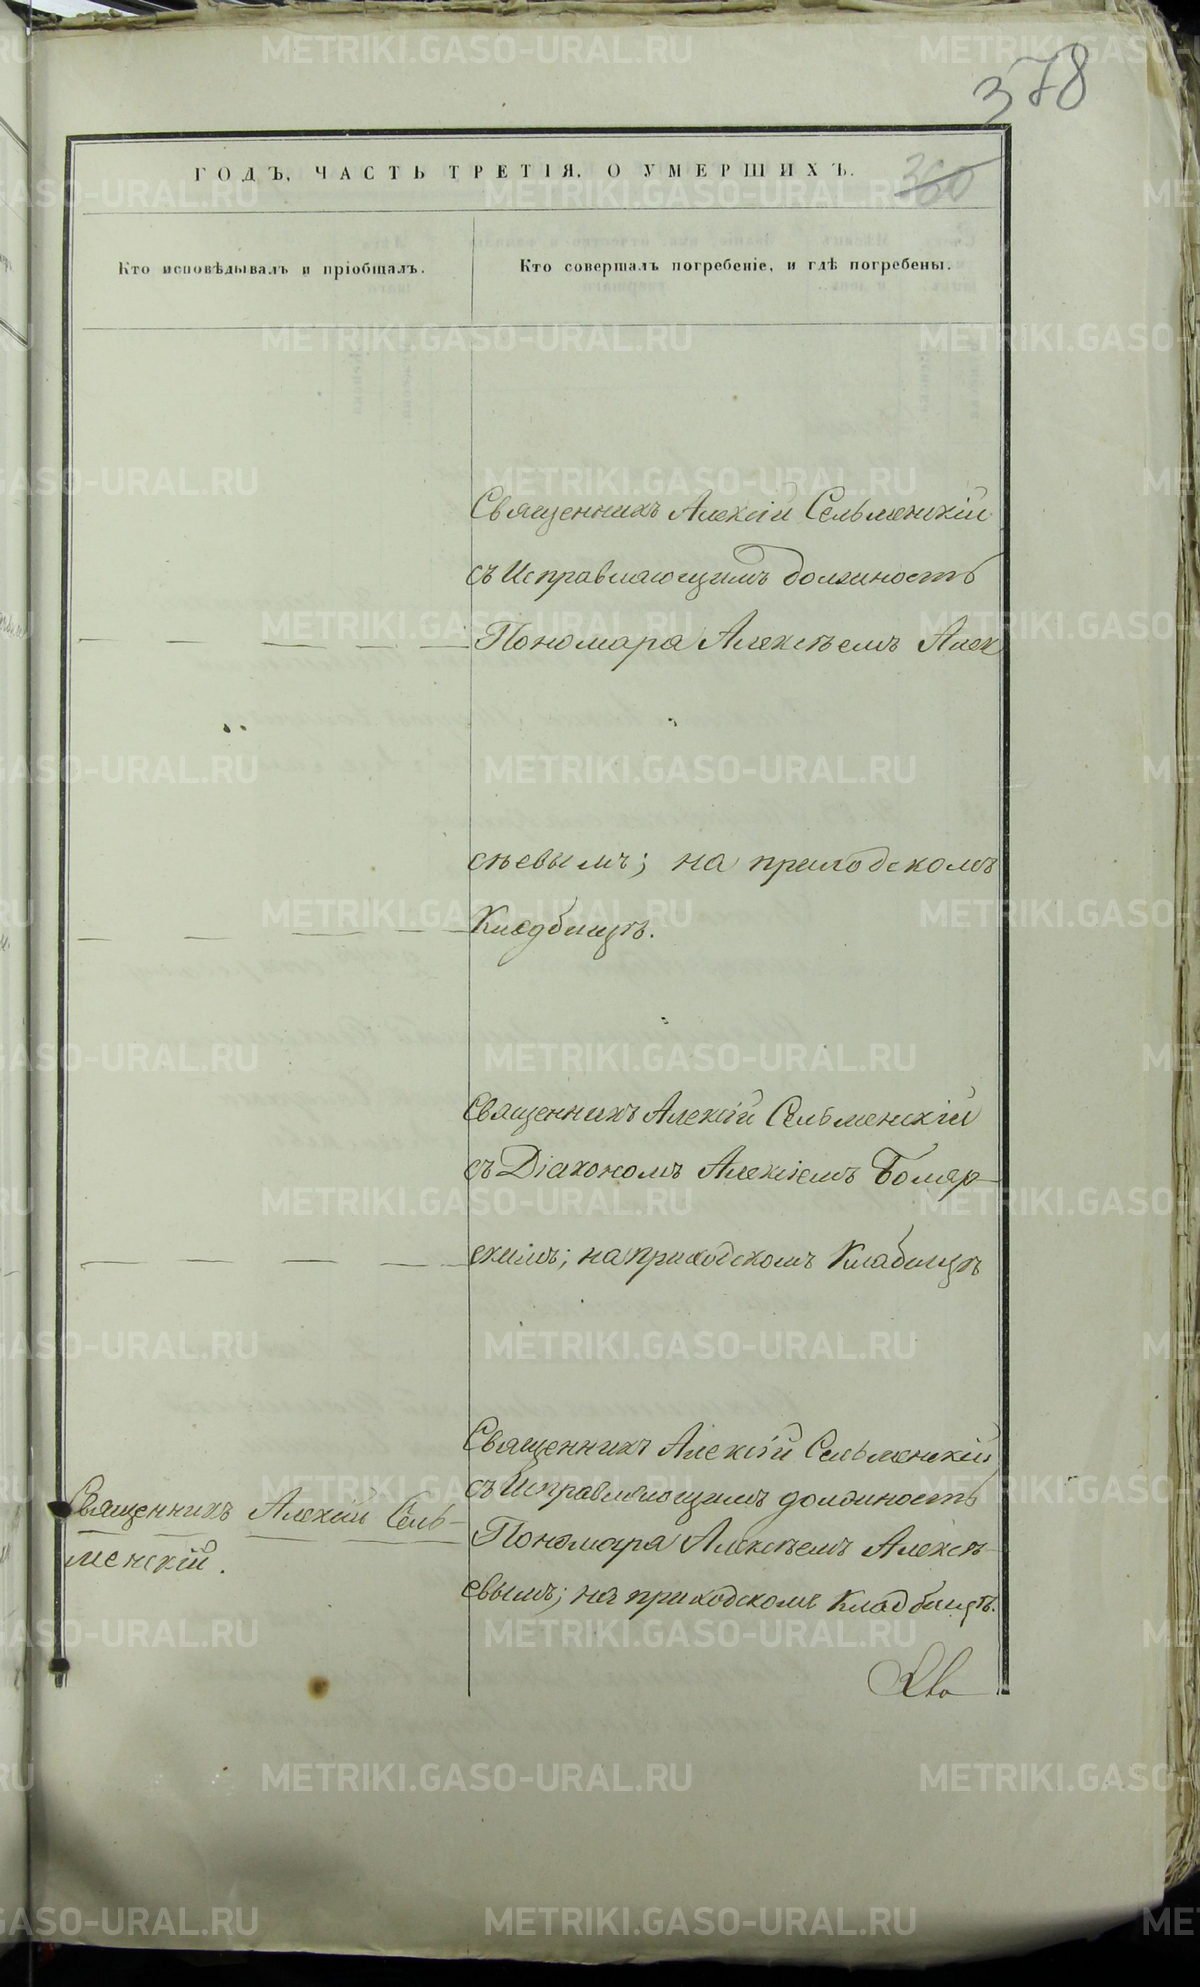 378
ГОДЪ, ЧАСТЬ ТРЕТІЯ, О УМЕРШИХЪ.
360
Кто исповѣдывалъ и пріобщалъ.
Кто совершалъ погребеніе, и гдѣ погребены.
Священникъ Алексій Сельменскій
съ Исправляющимъ должность
Пономаря Алексѣемъ Алек
сѣевымъ; на приходскомъ
Кладбищѣ.
Священникъ Алексій Сельменскій
съ Діакономъ Алексіемъ Боляр-
скимъ; на приходскомъ Клабищѣ
Священникъ Алексій Сельменскій
съ Исправляющимъ должность
Пономаря Алексѣемъ Алексѣ-
евымъ; на приходскомъ Кладбищѣ.
Священникъ Алексій Сель-
менскій.
METRIKI.GASO-URAL.RU